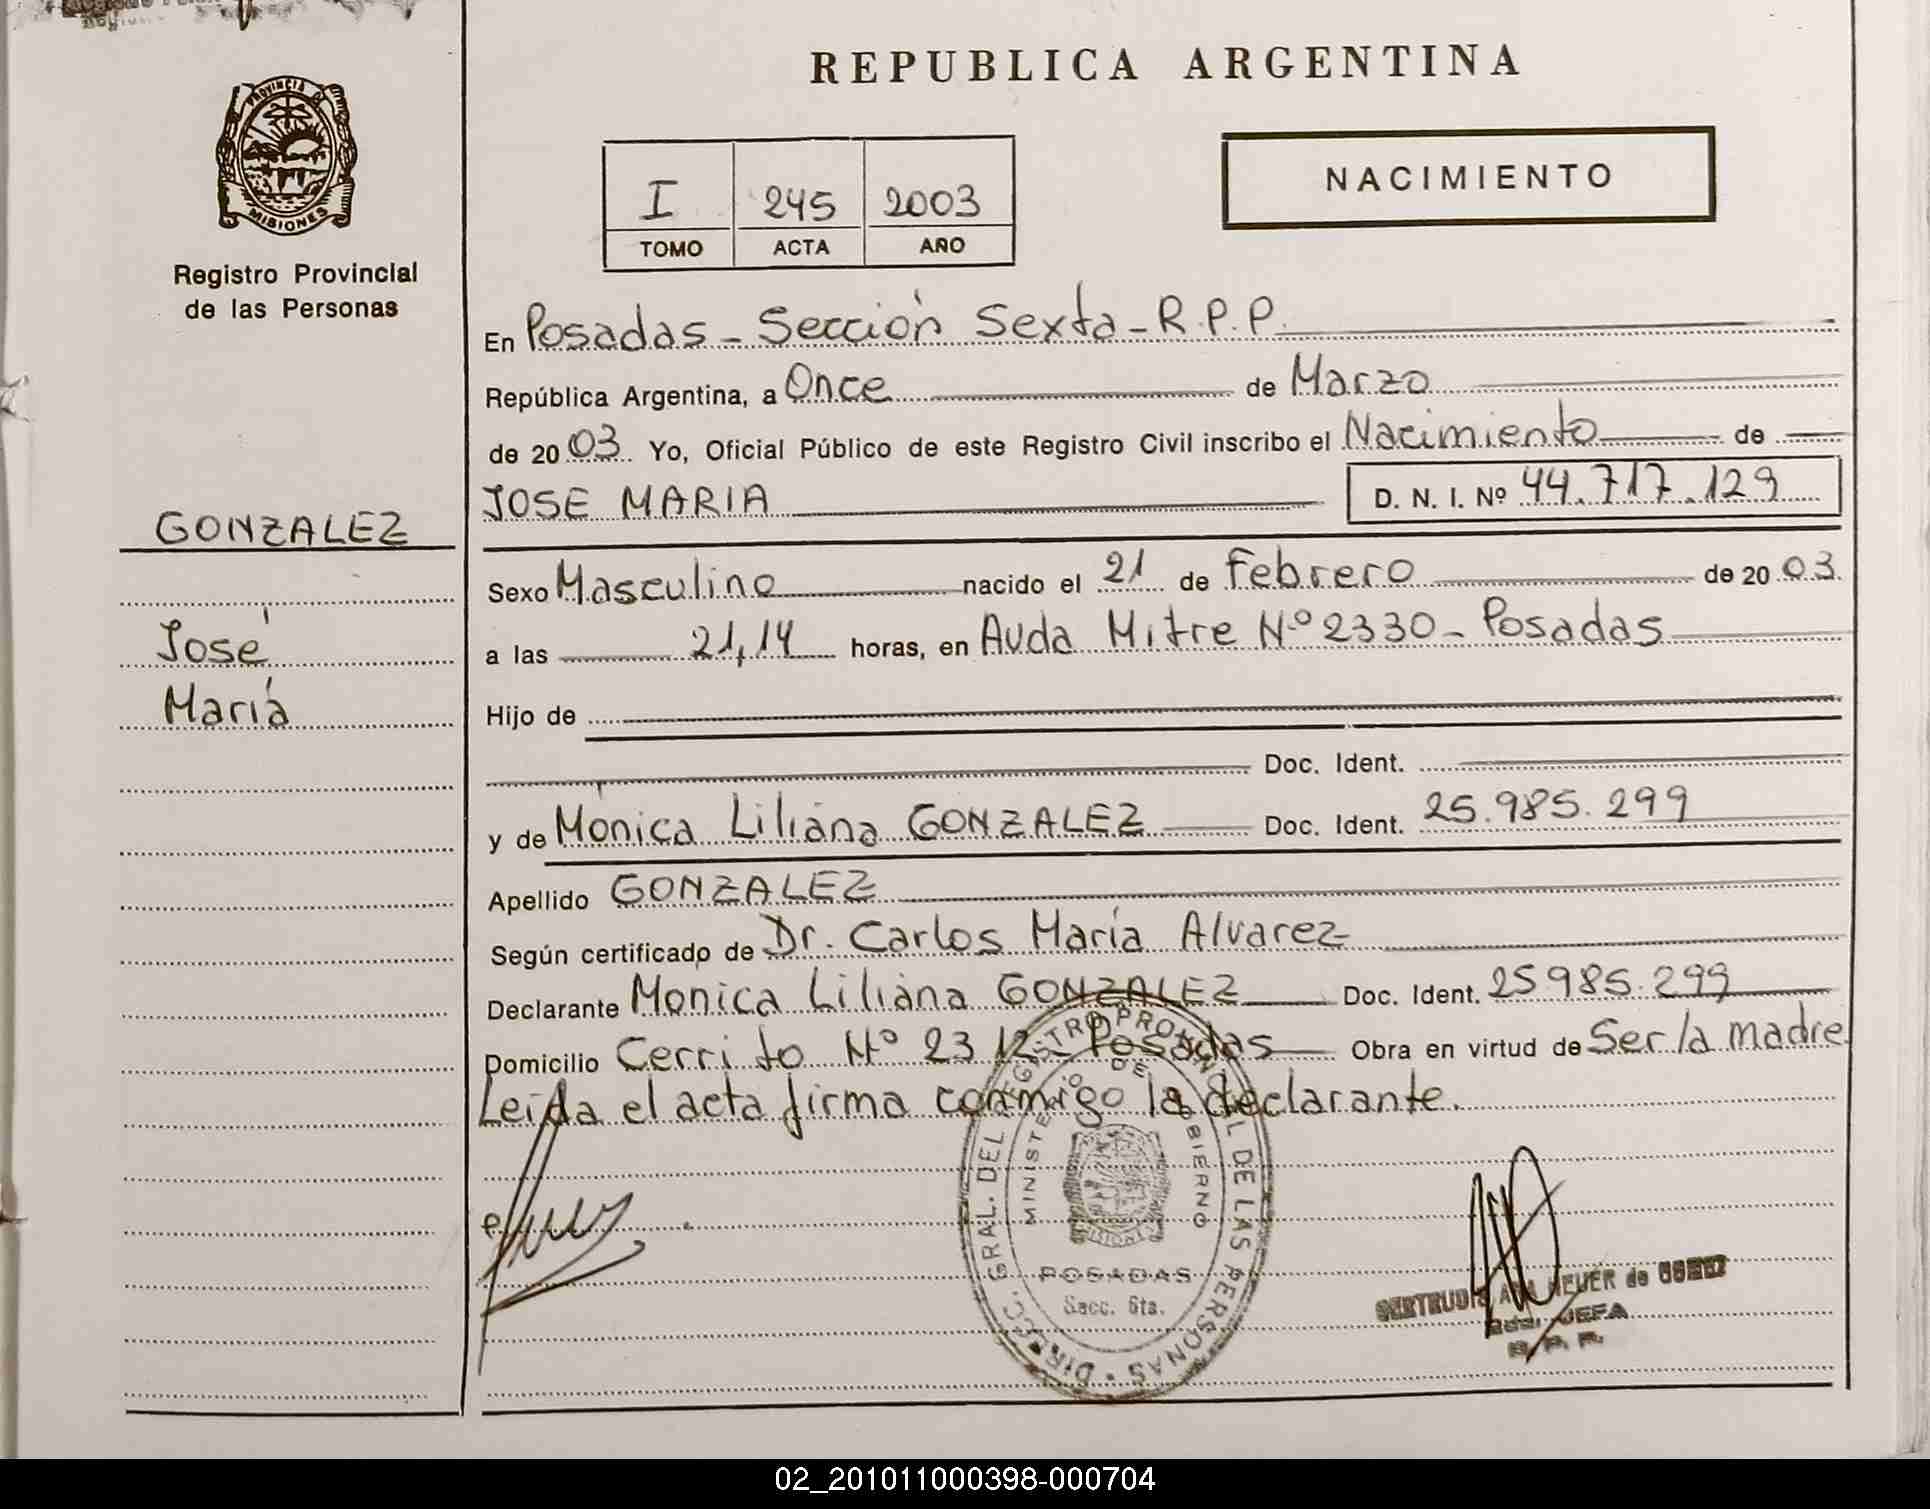 REPUBLICA ARGENTINA
PROVINCIA DE
MISIONES
Registro Provincial
de las Personas
I 245 2003
TOMO ACTA AÑO
NACIMIENTO
En Posadas - Sección Sexta - R.P.P.
República Argentina, a Once de Marzo
de 2003 Yo, Oficial Público de este Registro Civil inscribo el Nacimiento de
JOSE MARIA D. N. I. Nº 44.717.129
GONZALEZ
José
María
Sexo Masculino nacido el 21 de Febrero de 2003.
a las 21,14 horas, en Avda Mitre Nº 2330 - Posadas
Hijo de
Doc. Ident.
y de Mónica Liliana GONZALEZ Doc. Ident. 25.985.299
Apellido GONZALEZ
Según certificado de Dr. Carlos María Alvarez
Declarante Monica Liliana GONZALEZ Doc. Ident. 25985.299
Domicilio Cerrito Nº 2312 - Posadas Obra en virtud de Ser la madre
Leída el acta firma conmigo la declarante.
DIRECC. GRAL. DEL REGISTRO PROVINCIAL DE LAS PERSONAS
MINISTERIO DE GOBIERNO
MISIONES
POSADAS
Secc. 6ta.
GERTRUDIS MEUER de GOMEZ
JEFA
R. P. P.
02_201011000398-000704